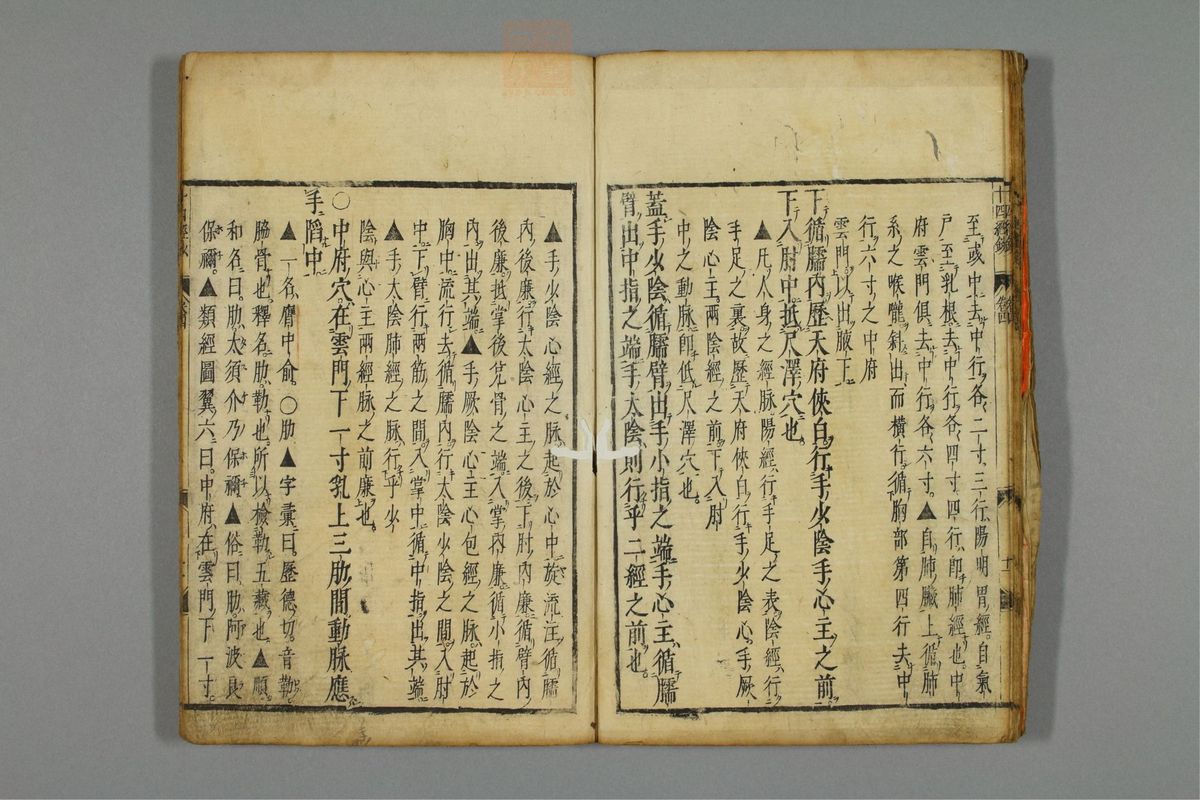 至或中去中行各二寸三行陽明胃經自氣
戶至乳根去中行各四寸四行即肺經也中
府雲門俱去中行各六寸▲自肺臟上循肺
系之喉嚨斜出而橫行循胸部第四行去中
行六寸之中府
雲門以出腋下
下循臑內歷天府俠白行手少陰手心主之前
下入肘中抵尺澤穴也
▲凡人身之經脉陽經行手足之表陰經行
手足之裏故歷天府俠白行手少陰心手厥
陰心主兩陰經之前下入肘
中之動脉即低尺澤穴也
蓋手少陰循臑臂出手小指之端手心主循臑
臂出中指之端手太陰則行乎二經之前也
▲手少陰心經之脉起於心中旋流注循臑
內後廉行太陰心主之後下肘內廉循臂內
後廉抵掌後兌骨之端入掌內廉循小指之
內出其端▲手厥陰心主心包經之脉起於
胸中流行去循臑內行太陰少陰之間入肘
中下臂行兩筋之間入掌中循中指出其端
▲手太陰肺經之脉行乎少
陰與心主兩經脉之前廉也
○中府穴在雲門下一寸乳上三肋間動脉應
手陷中
▲一名膺中俞○肋▲字彙曰歷德切音勒
脇骨也釋名肋勒也所以檢勒五藏也▲順
和名曰肋太須介乃保禰▲俗曰肋阿波良
保禰▲類經圖翼六曰中府在雲門下一寸